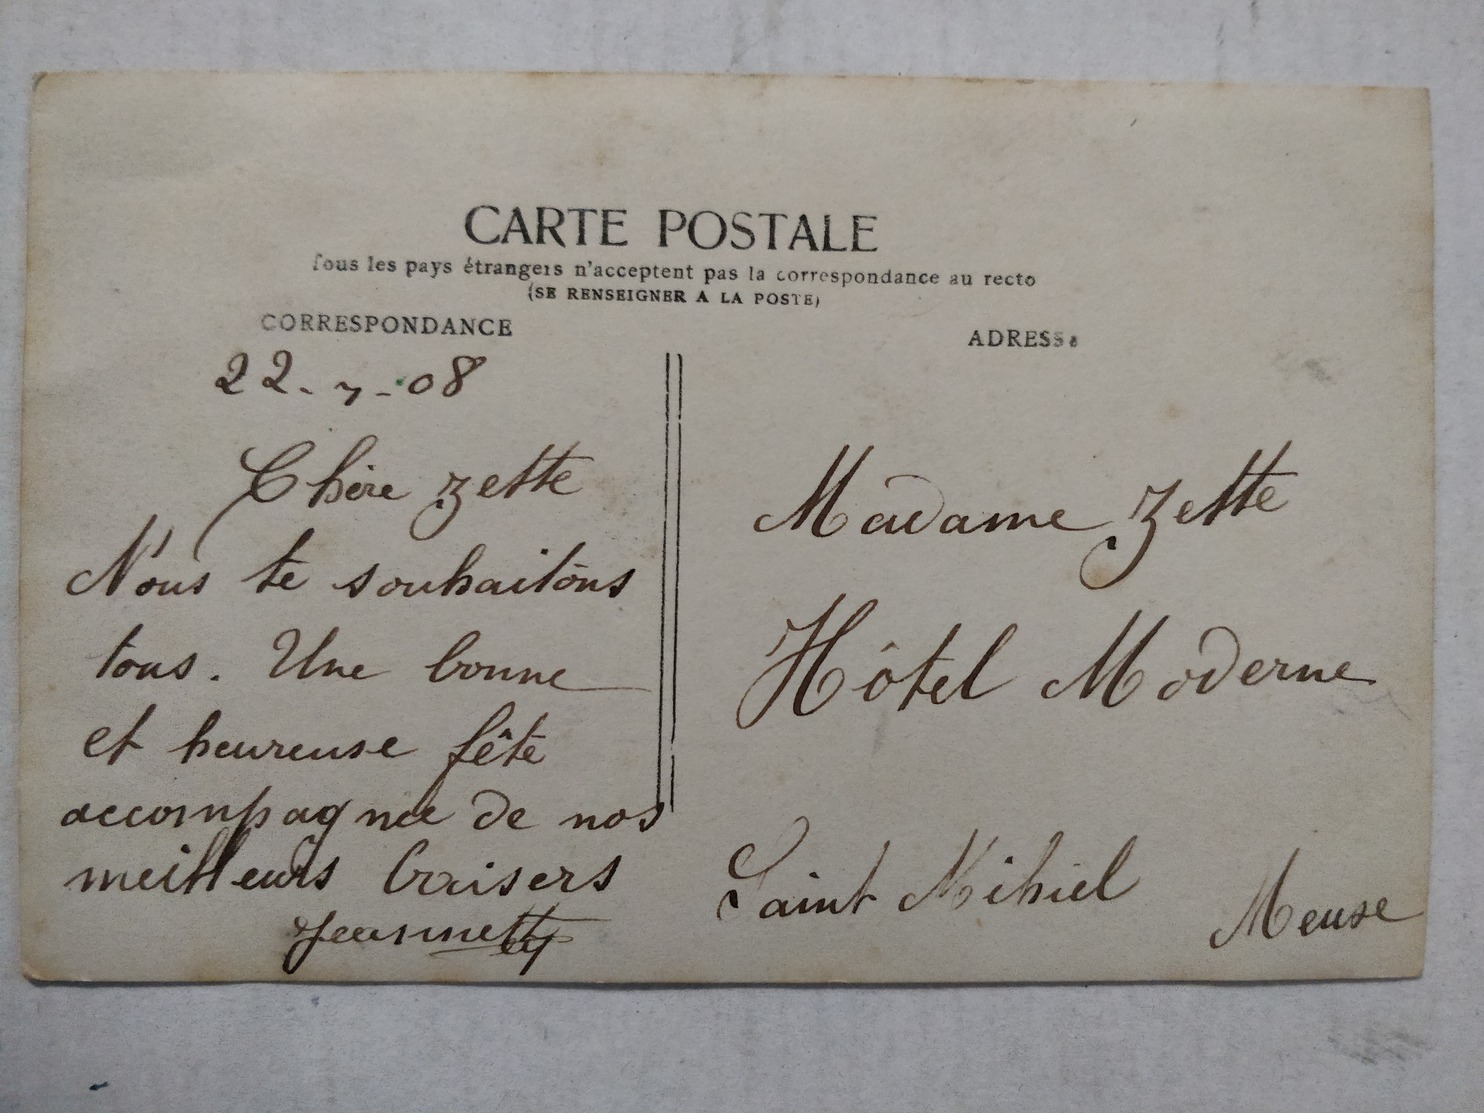 CARTE POSTALE
Tous les pays étrangers n'acceptent pas la correspondance au recto
(SE RENSEIGNER A LA POSTE)
CORRESPONDANCE
22-7-08
Chère Zette
Nous te souhaitons
tous. Une bonne
et heureuse fête
accompagnée de nos
meilleurs baisers
Jeannette
ADRESSE
Madame Zette
Hôtel Moderne
Saint Mihiel
Meuse